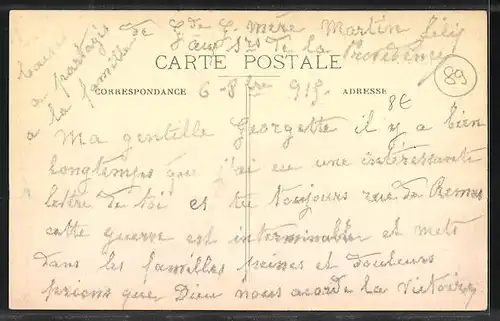 de G de G. mère Martin
Srs de la Providence
Baisers
a partager
a la famille
CARTE POSTALE
CORRESPONDANCE
ADRESSE
6-8bre 915.
89
8E
Ma gentille Georgette il y a bien
longtemps que j'ai eu une intéressante
lettre de toi es tu toujours rue de Rennes
cette guerre est interminable et mets
dans les familles peines et douleurs
prions que Dieu nous acorde la victoire